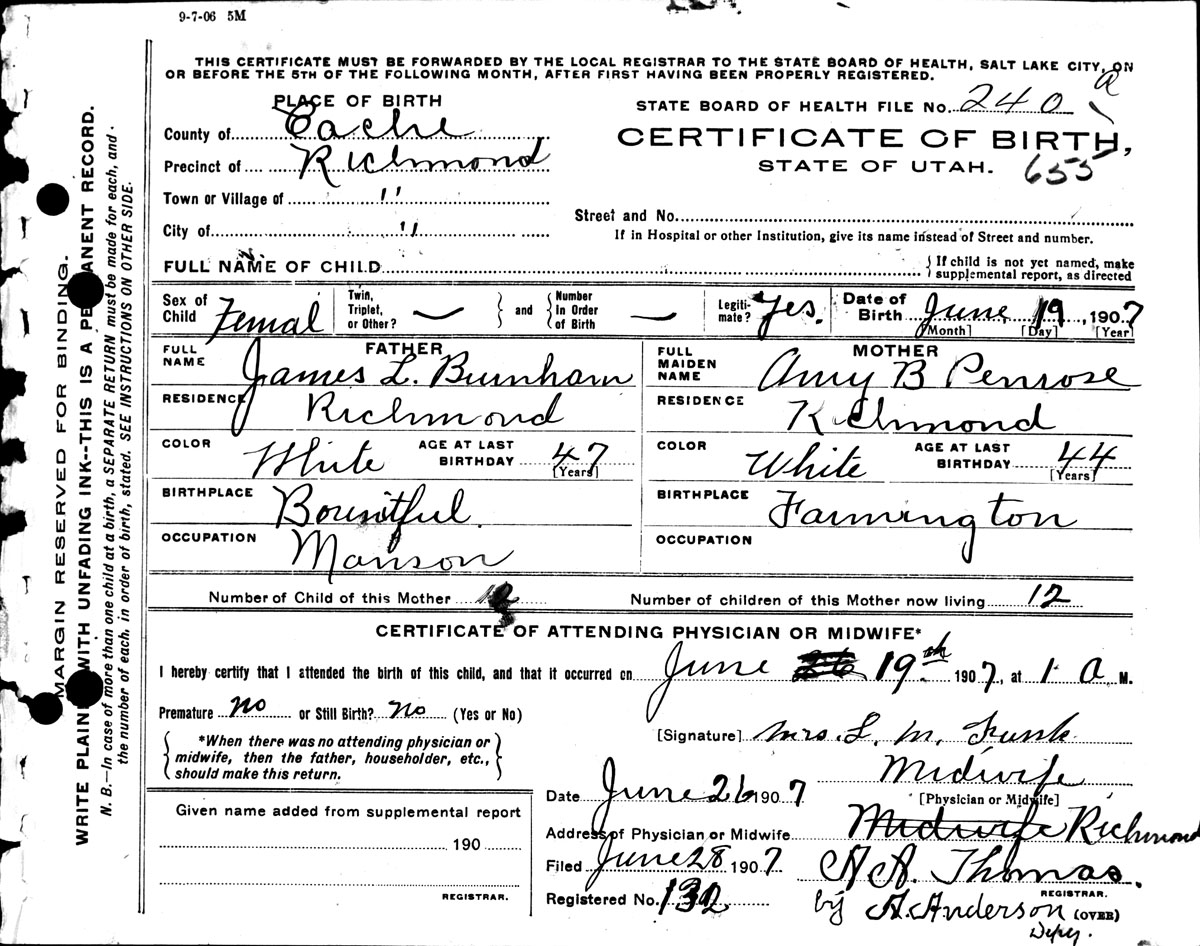 9-7-06 5M
THIS CERTIFICATE MUST BE FORWARDED BY THE LOCAL REGISTRAR TO THE STATE BOARD OF HEALTH, SALT LAKE CITY, ON
OR BEFORE THE 5TH OF THE FOLLOWING MONTH, AFTER FIRST HAVING BEEN PROPERLY REGISTERED.
PLACE OF BIRTH
County of Cache
Precinct of Richmond
Town or Village of "
City of "
STATE BOARD OF HEALTH FILE No. 240 a
CERTIFICATE OF BIRTH,
STATE OF UTAH. 655
Street and No.
If in Hospital or other Institution, give its name instead of Street and number.
FULL NAME OF CHILD
{ If child is not yet named, make
supplemental report, as directed
Sex of Child Femal
Twin, Triplet, or Other? —
} and {
Number In Order of Birth —
Legiti-mate? Yes.
Date of Birth June 19, 1907
[Month] [Day] [Year]
FATHER
FULL NAME James L. Burnham
RESIDENCE Richmond
COLOR White AGE AT LAST BIRTHDAY 47 [Years]
BIRTHPLACE Bountful.
OCCUPATION Manson
MOTHER
FULL MAIDEN NAME Amy B Penrose
RESIDENCE Richmond
COLOR White AGE AT LAST BIRTHDAY 44 [Years]
BIRTHPLACE Farmington
OCCUPATION
Number of Child of this Mother 12 Number of children of this Mother now living 12
CERTIFICATE OF ATTENDING PHYSICIAN OR MIDWIFE*
I hereby certify that I attended the birth of this child, and that it occurred on June 26 19th 1907, at 1 a M.
Premature no or Still Birth? no (Yes or No)
{ *When there was no attending physician or
midwife, then the father, householder, etc.,
should make this return. }
[Signature] Mrs. L. M. Funk
Midwife
[Physician or Midwife]
Date June 26 1907
Address of Physician or Midwife Midwife Richmond
Filed June 28 1907 A A. Thomas.
REGISTRAR.
Registered No. 132 by A. Anderson (OVER)
Depy.
Given name added from supplemental report
190
REGISTRAR.
MARGIN RESERVED FOR BINDING.
WRITE PLAINLY WITH UNFADING INK--THIS IS A PERMANENT RECORD.
N. B.—In case of more than one child at a birth, a SEPARATE RETURN must be made for each, and
the number of each, in order of birth, stated. SEE INSTRUCTIONS ON OTHER SIDE.